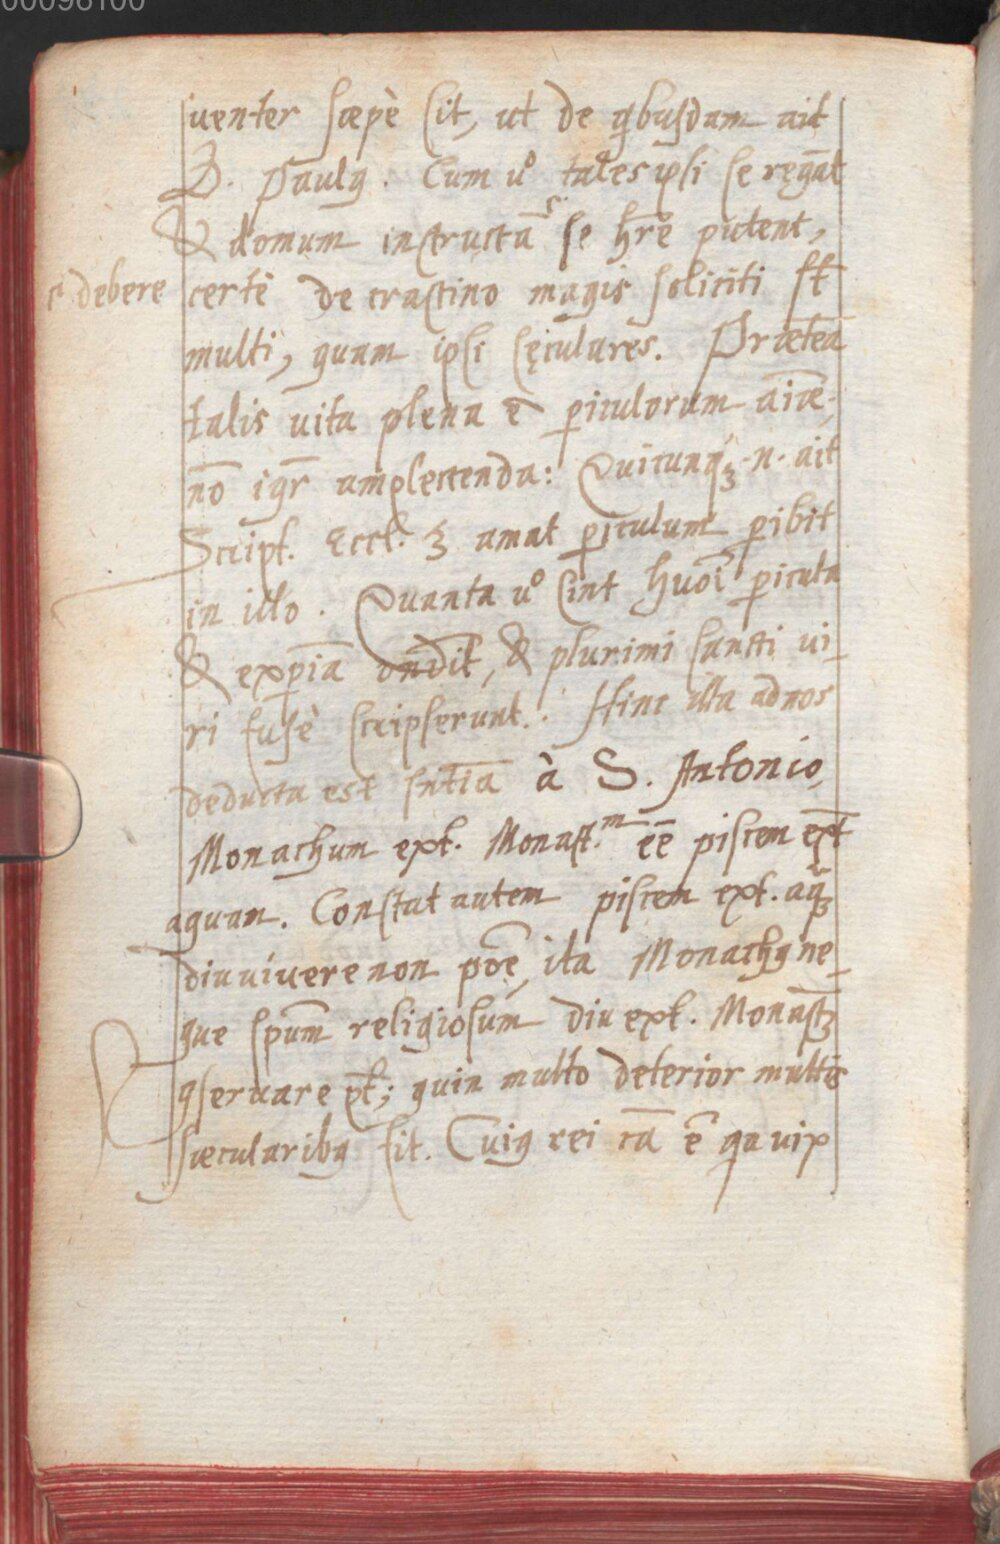 00098100
venter sæpè sit, ut de qbusdam ait
D. Paulq. Cum u° tales ipsi se regāt
& domum instructā se hr̄e putent,
č debere
certè de crastino magis soliciti st̄
multi, quam ipsi sęculares. Prætea
talis uita plena ē piculorum aīæ,
nō igr̄ amplectenda: Quicunqꝫ .n. ait
Script. Eccl. 3 amat piculum pibit
in illo. Quanta u° sint huōi picula
& expiā ondit, & plurimi sancti ui-
ri fusè scripserunt. Hinc illa ad nos
deducta est sntīa à S. Antonio,
Monachum ext. Monast.m ēē piscem ext
aquam. Constat autem piscem ext. aqꝫ
diu uivere non poē, ita Monachq ne-
que spūm religiosum diu ext. Monastꝫ
qseruare pt; quin multo deterior multis
sæcularibq fit. Cuiq rei cā ē qa uix